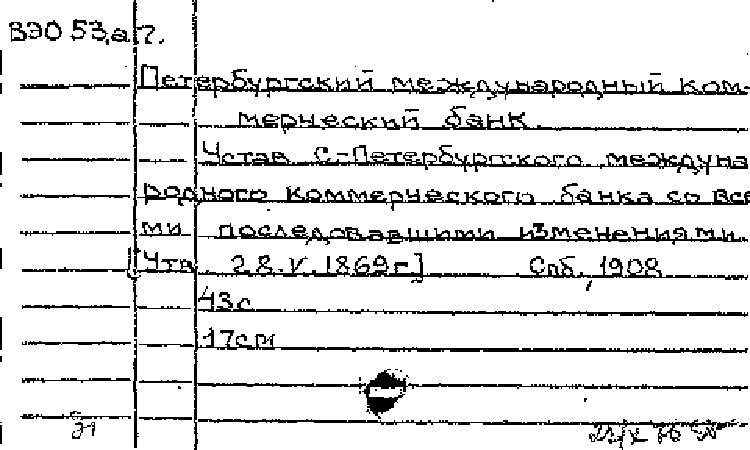 ВЭО 53,а
Петербургский международный ком-
мерческий банк.
Устав С-Петербургского междуна
родного коммерческого банка со все
ми последовавшими изменениями.
[Утв. 28.V.1869г.] Спб., 1908
43с
17см